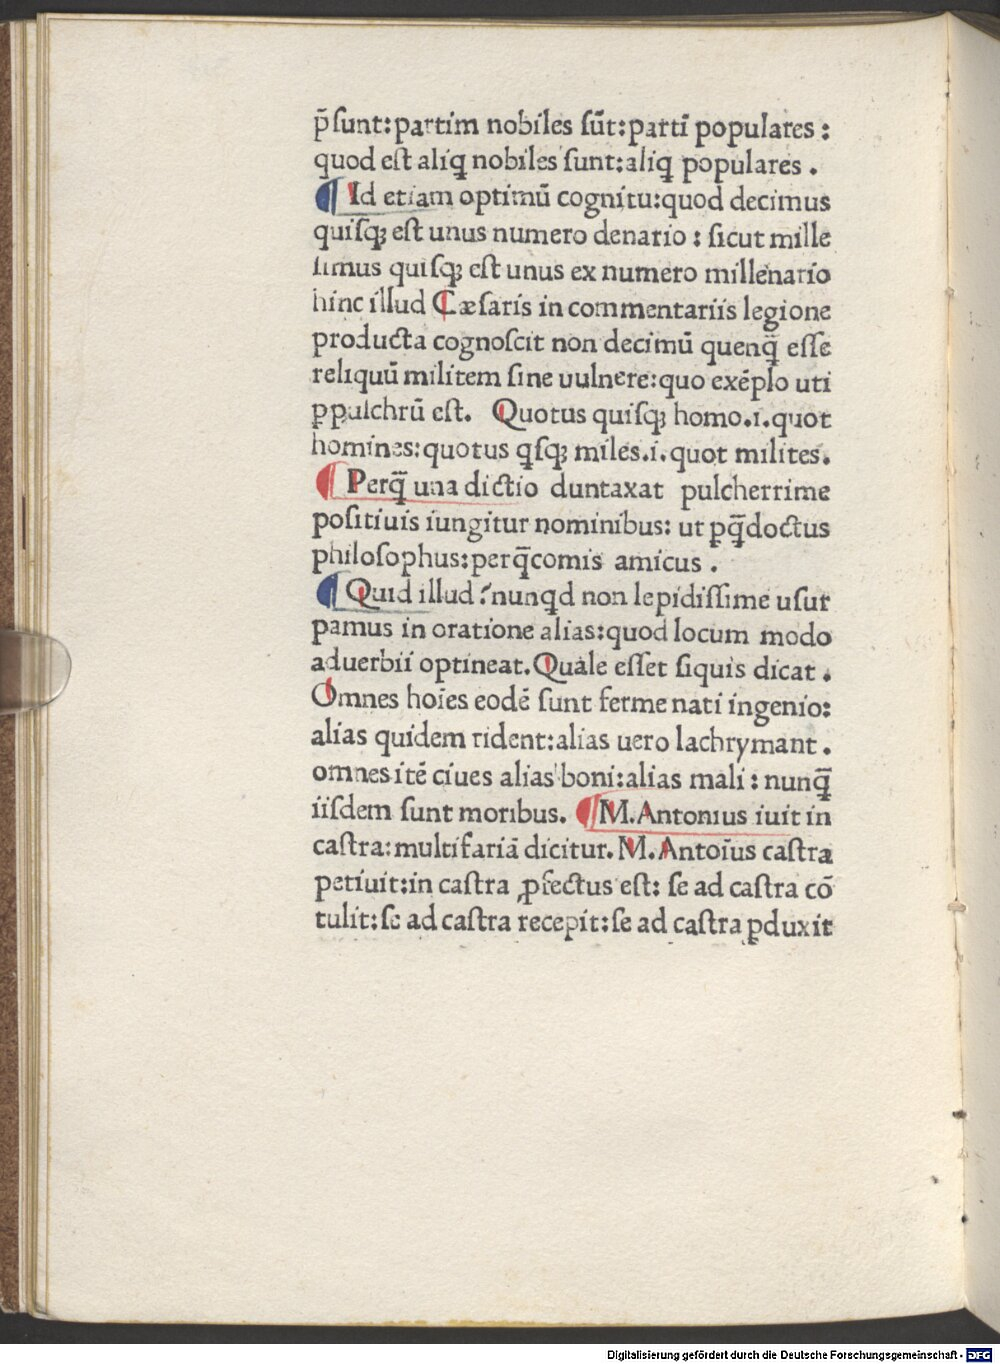 p̄ſunt:partim nobiles ſūt:partī populares :
quod eſt aliꝗ nobiles ſunt:aliꝗ populares .
¶ Id etiam optimū cognitu:quod decimus
quiſqꝫ eſt unus numero denario : ſicut mille
ſimus quiſqꝫ eſt unus ex numero millenario
hinc illud Cæſaris in commentariis legione
producta cognoſcit non decimū quenꝗ̄ eſſe
reliquū militem ſine uulnere:quo exēplo uti
ꝑpulchrū eſt. Quotus quiſqꝫ homo.i.quot
homines:quotus qſqꝫ miles.i.quot milites.
¶ Perꝗ̄ una dictio duntaxat pulcherrime
poſitiuis iungitur nominibus: ut ꝑꝗ̄doctus
philoſophus:perꝗ̄comis amicus .
¶ Quid illud?nunqd non lepidiſſime uſur
pamus in oratione alias:quod locum modo
aduerbii optineat.Quale eſſet ſiquis dicat .
Omnes hoīes eodē ſunt ferme nati ingenio:
alias quidem rident:alias uero lachrymant .
omnes itē ciues alias boni:alias mali : nunꝗ̄
iiſdem ſunt moribus. ¶ M.Antonius iuit in
caſtra:multifariā dicitur.M.Antoīus caſtra
petiuit:in caſtra ꝓfectus eſt: ſe ad caſtra cō
tulit:ſe ad caſtra recepit:ſe ad caſtra ꝑduxit
Digitalisierung gefördert durch die Deutsche Forschungsgemeinschaft - DFG